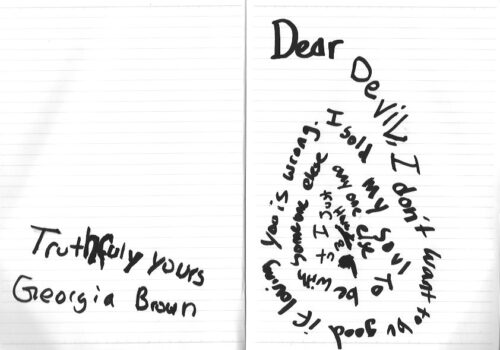 Dear
Devil, I don't want to be good if loving you is wrong.
I sold my soul To be with someone else any one else
Truthfuly yours
Georgia Brown